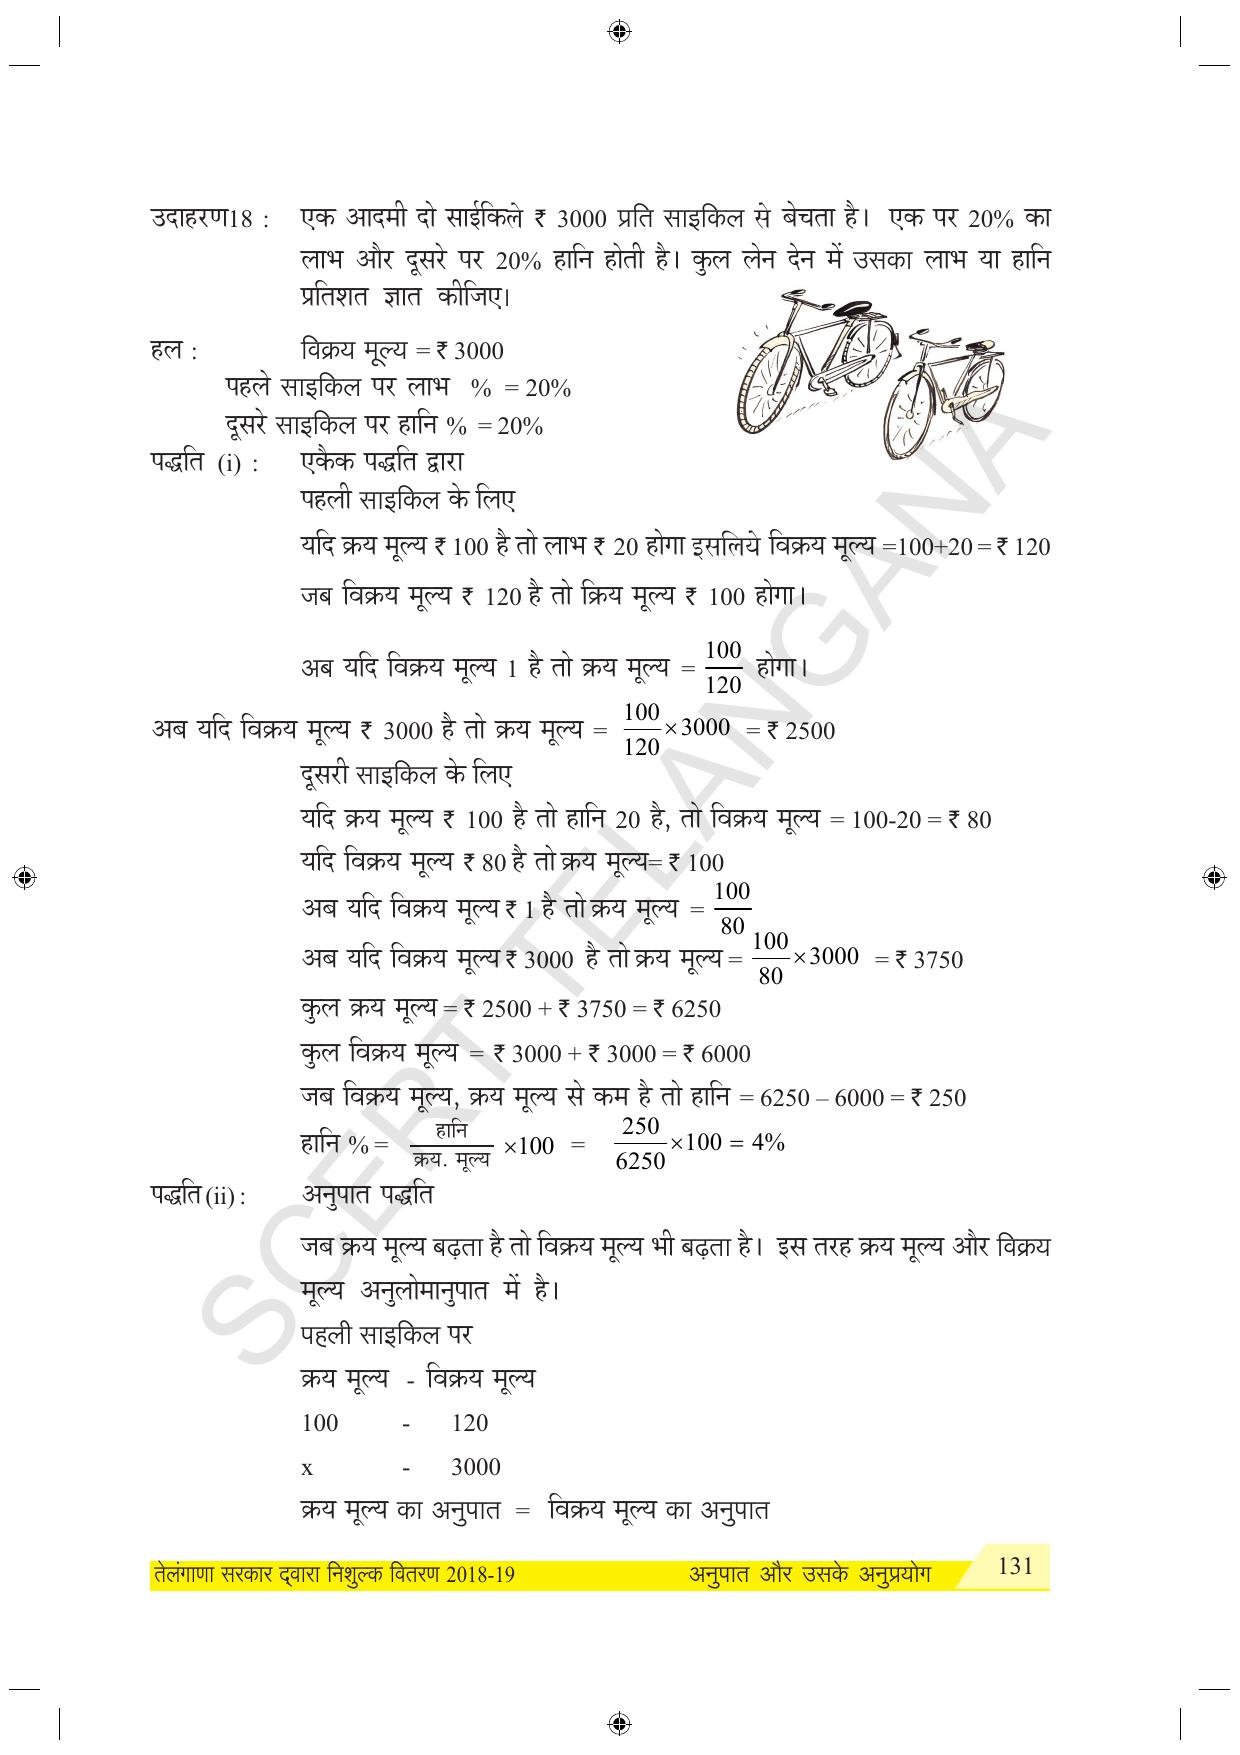 उदाहरण18 : एक आदमी दो साईकिले ₹ 3000 प्रति साइकिल से बेचता है। एक पर 20% का
लाभ और दूसरे पर 20% हानि होती है। कुल लेन देन में उसका लाभ या हानि
प्रतिशत ज्ञात कीजिए।
हल : विक्रय मूल्य = ₹ 3000
पहले साइकिल पर लाभ % = 20%
दूसरे साइकिल पर हानि % = 20%
पद्धति (i) : एकैक पद्धति द्वारा
पहली साइकिल के लिए
यदि क्रय मूल्य ₹ 100 है तो लाभ ₹ 20 होगा इसलिये विक्रय मूल्य =100+20 = ₹ 120
जब विक्रय मूल्य ₹ 120 है तो क्रिय मूल्य ₹ 100 होगा।
अब यदि विक्रय मूल्य 1 है तो क्रय मूल्य = 100/120 होगा।
अब यदि विक्रय मूल्य ₹ 3000 है तो क्रय मूल्य = 100/120 ×3000 = ₹ 2500
दूसरी साइकिल के लिए
यदि क्रय मूल्य ₹ 100 है तो हानि 20 है, तो विक्रय मूल्य = 100-20 = ₹ 80
यदि विक्रय मूल्य ₹ 80 है तो क्रय मूल्य= ₹ 100
अब यदि विक्रय मूल्य ₹ 1 है तो क्रय मूल्य = 100/80
अब यदि विक्रय मूल्य ₹ 3000 है तो क्रय मूल्य = 100/80 ×3000 = ₹ 3750
कुल क्रय मूल्य = ₹ 2500 + ₹ 3750 = ₹ 6250
कुल विक्रय मूल्य = ₹ 3000 + ₹ 3000 = ₹ 6000
जब विक्रय मूल्य, क्रय मूल्य से कम है तो हानि = 6250 – 6000 = ₹ 250
हानि % = हानि/क्रय. मूल्य ×100 = 250/6250 ×100 = 4%
पद्धति (ii) : अनुपात पद्धति
जब क्रय मूल्य बढ़ता है तो विक्रय मूल्य भी बढ़ता है। इस तरह क्रय मूल्य और विक्रय
मूल्य अनुलोमानुपात में है।
पहली साइकिल पर
क्रय मूल्य - विक्रय मूल्य
100 - 120
x - 3000
क्रय मूल्य का अनुपात = विक्रय मूल्य का अनुपात
तेलंगाणा सरकार द्वारा निशुल्क वितरण 2018-19 अनुपात और उसके अनुप्रयोग 131
SCERT TELANGANA